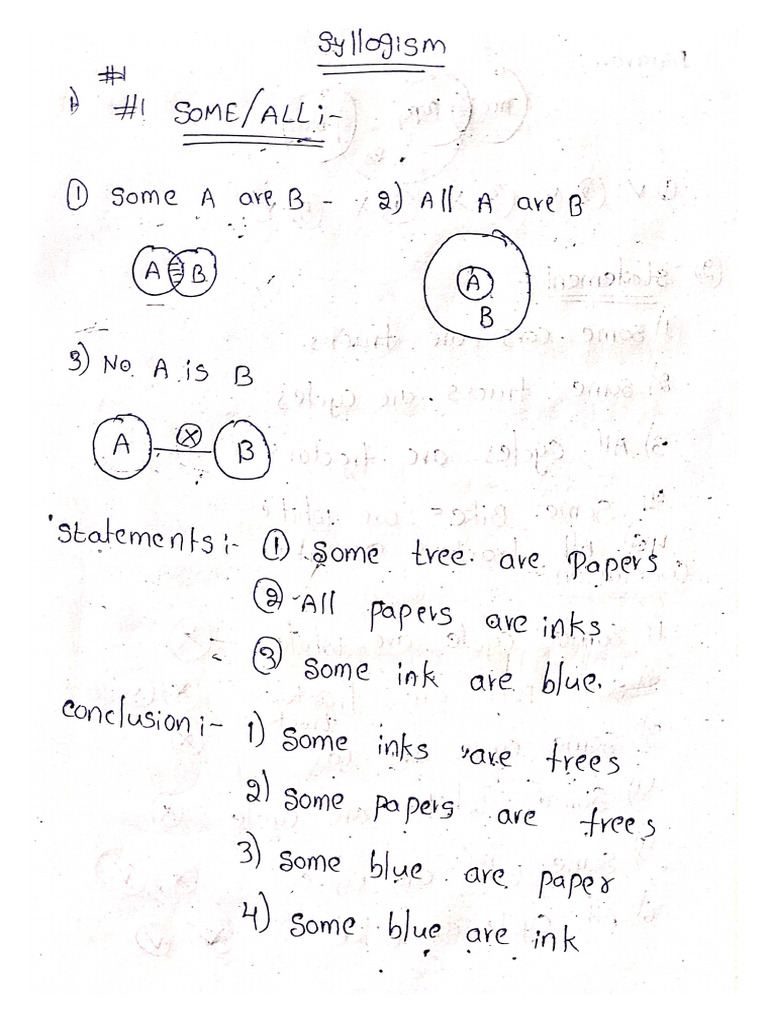 Syllogism
#1
1) #1 SOME/ALL :-
① Some A are B - 2) All A are B
A B
A
B
3) No A is B
A ⊗ B
Statements :- ① Some tree are Papers
② All papers are inks
③ Some ink are blue.
Conclusion :- 1) Some inks are trees
2) Some papers are trees
3) Some blue are paper
4) Some blue are ink